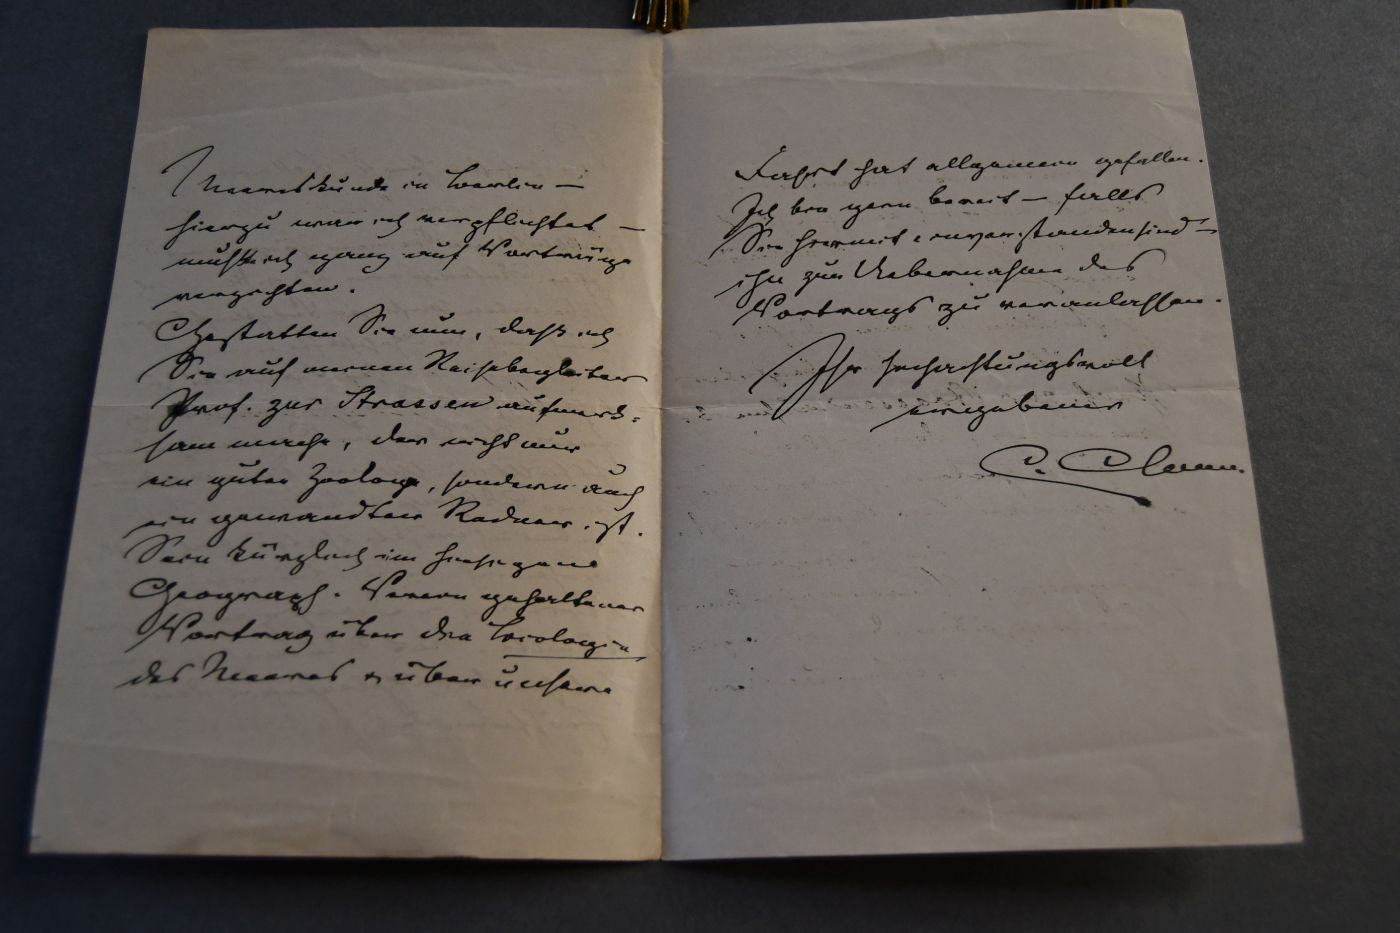 Meereskunde in Berlin —
hierzu war ich verpflichtet —
mußte ich ganz auf Vorträge
verzichten.
Gestatten Sie nun, daß ich
Sie auf meinen Reisebegleiter
Prof. zur Strassen aufmerk-
sam mache, der nicht nur
ein guter Zoologe, sondern auch
ein gewandter Redner ist.
Sein kürzlich im hiesigen
Geograph. Verein gehaltener
Vortrag über die Biologie
des Meeres & über unsere
Fahrt hat allgemein gefallen.
Ich bin gern bereit — falls
Sie hiermit einverstanden sind —
ihn zur Uebernahme des
Vortrags zu veranlassen.
Ihr hochachtungsvoll
ergebener
C. Chun.